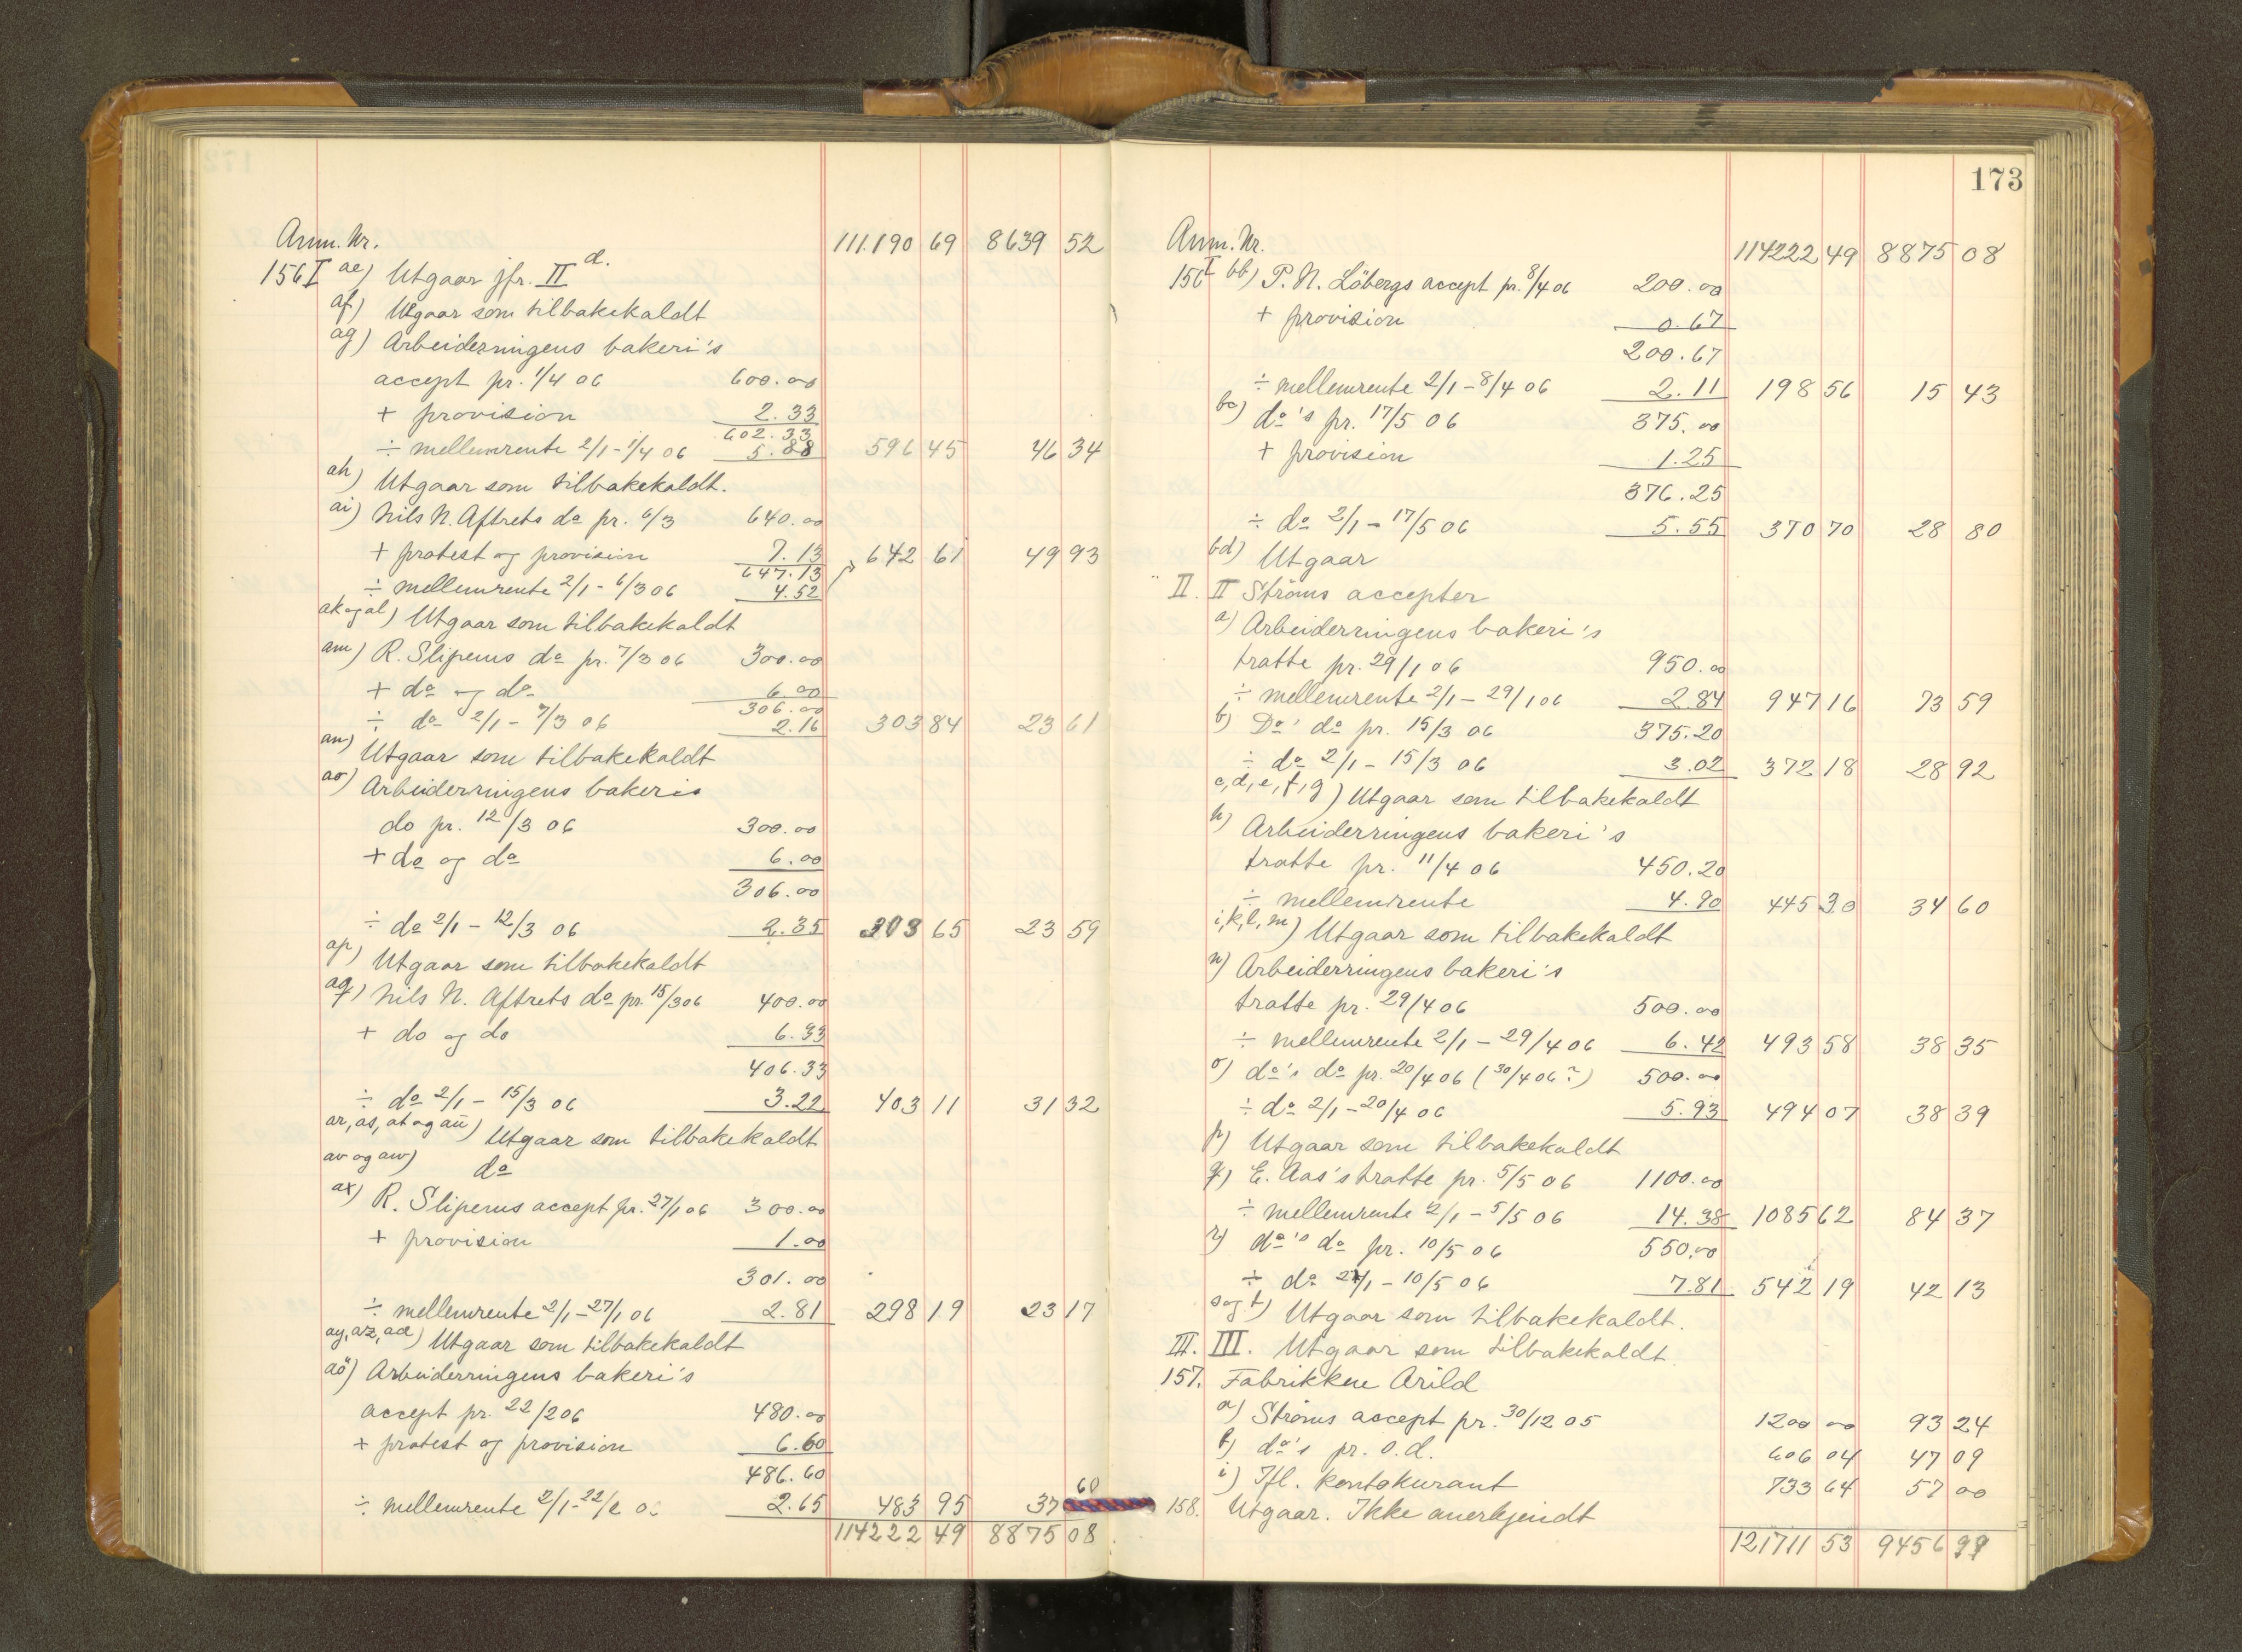 Anm. Nr. 111.190 69 8639 52
156 I ae) Utgaar jfr. II d.
af) Utgaar som tilbakekaldt
ag) Arbeiderringens bakeri's
accept pr. 1/4 06 600.00
+ provision 2.33
602.33
÷ mellemrente 2/1 - 1/4 06 5.88 596 45 46 34
ah) Utgaar som tilbakekaldt.
ai) Nils N. Aftrets do pr. 6/3 640.00
+ protest og provision 7.13 642 61 49 93
647.13
÷ mellemrente 2/1 - 6/3 06 4.52
ak og al) Utgaar som tilbakekaldt
am) R. Slipems do pr. 7/3 06 300.00
+ do og do 6.00
306.00
÷ do 2/1 - 7/3 06 2.16 303 84 23 61
an) Utgaar som tilbakekaldt
ao) Arbeiderringens bakeris
do pr. 12/3 06 300.00
+ do og do 6.00
306.00
÷ do 2/1 - 12/3 06 2.35 303 65 23 59
ap) Utgaar som tilbakekaldt
aq) Nils N. Aftrets do pr. 15/3 06 400.00
+ do og do 6.33
406.33
÷ do 2/1 - 15/3 06 3.22 403 11 31 32
ar, as, at og au) Utgaar som tilbakekaldt
av og aw) do
ax) R. Slipems accept pr. 27/1 06 300.00
+ provision 1.00
301.00
÷ mellemrente 2/1 - 27/1 06 2.81 298 19 23 17
ay, az, aæ) Utgaar som tilbakekaldt
aö) Arbeiderringens bakeri's
accept pr. 22/2 06 480.00
+ protest og provision 6.60
486.60
÷ mellemrente 2/1 - 22/2 06 2.65 483 95 37 60
114222 49 8875 08
173
Anm. Nr. 114222 49 8875 08
156 I bb) P. N. Löbergs accept pr. 8/4 06 200.00
+ provision 0.67
200.67
÷ mellemrente 2/1 - 8/4 06 2.11 198 56 15 43
bc) do's pr. 17/5 06 375.00
+ provision 1.25
376.25
÷ do 2/1 - 17/5 06 5.55 370 70 28 80
bd) Utgaar
II. II Ströms accepter
a) Arbeiderringens bakeri's
tratte pr. 29/1 06 950.00
÷ mellemrente 2/1 - 29/1 06 2.84 947 16 73 59
b) Do' do pr. 15/3 06 375.20
÷ do 2/1 - 15/3 06 3.02 372 18 28 92
c, d, e, f, g) Utgaar som tilbakekaldt
h) Arbeiderringens bakeri's
tratte pr. 11/4 06 450.20
÷ mellemrente 4.90 445 30 34 60
i, k, l, m) Utgaar som tilbakekaldt
n) Arbeiderringens bakeri's
tratte pr. 29/4 06 500.00
÷ mellemrente 2/1 - 29/4 06 6.42 493 58 38 35
o) do's do pr. 20/4 06 (30/4 06?) 500.00
÷ do 2/1 - 20/4 06 5.93 494 07 38 39
p) Utgaar som tilbakekaldt
q) E. Aas's tratte pr. 5/5 06 1100.00
÷ mellemrente 2/1 - 5/5 06 14.38 1085 62 84 37
r) do's do pr. 10/5 06 550.00
÷ do 2/1 - 10/5 06 7.81 542 19 42 13
s og t) Utgaar som tilbakekaldt.
III. III. Utgaar som tilbakekaldt
157. Fabrikken Arild
a) Ströms accept pr. 30/12 05 1200 00 93 24
b) do's pr. s.d. 606 04 47 09
i) Ifl. kontokurant 733 64 57 00
158. Utgaar. Ikke anerkjendt
121711 53 9456 99